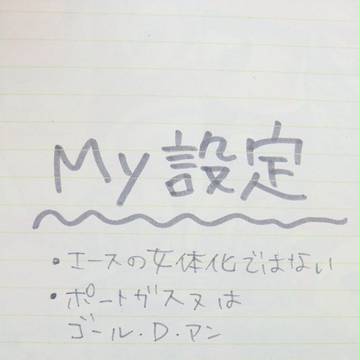 My設定
・エースの女体化ではない
・ポートガスヌは
ゴール・D・アン